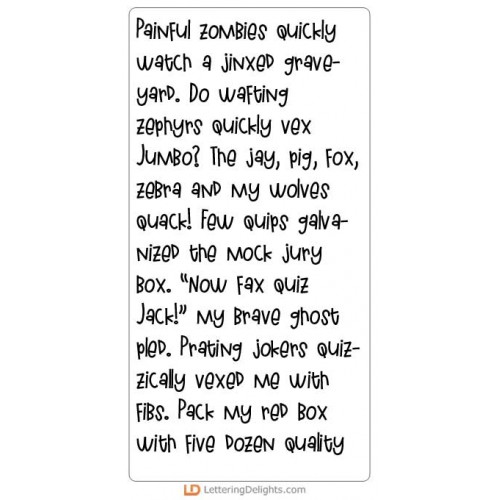 Painful zombies quickly
watch a jinxed grave-
yard. Do wafting
zephyrs quickly vex
Jumbo? The jay, pig, fox,
zebra and my wolves
quack! Few quips galva-
nized the mock jury
box. “Now fax quiz
Jack!” my brave ghost
pled. Prating jokers quiz-
zically vexed me with
fibs. Pack my red box
with five dozen quality
LD LetteringDelights.com